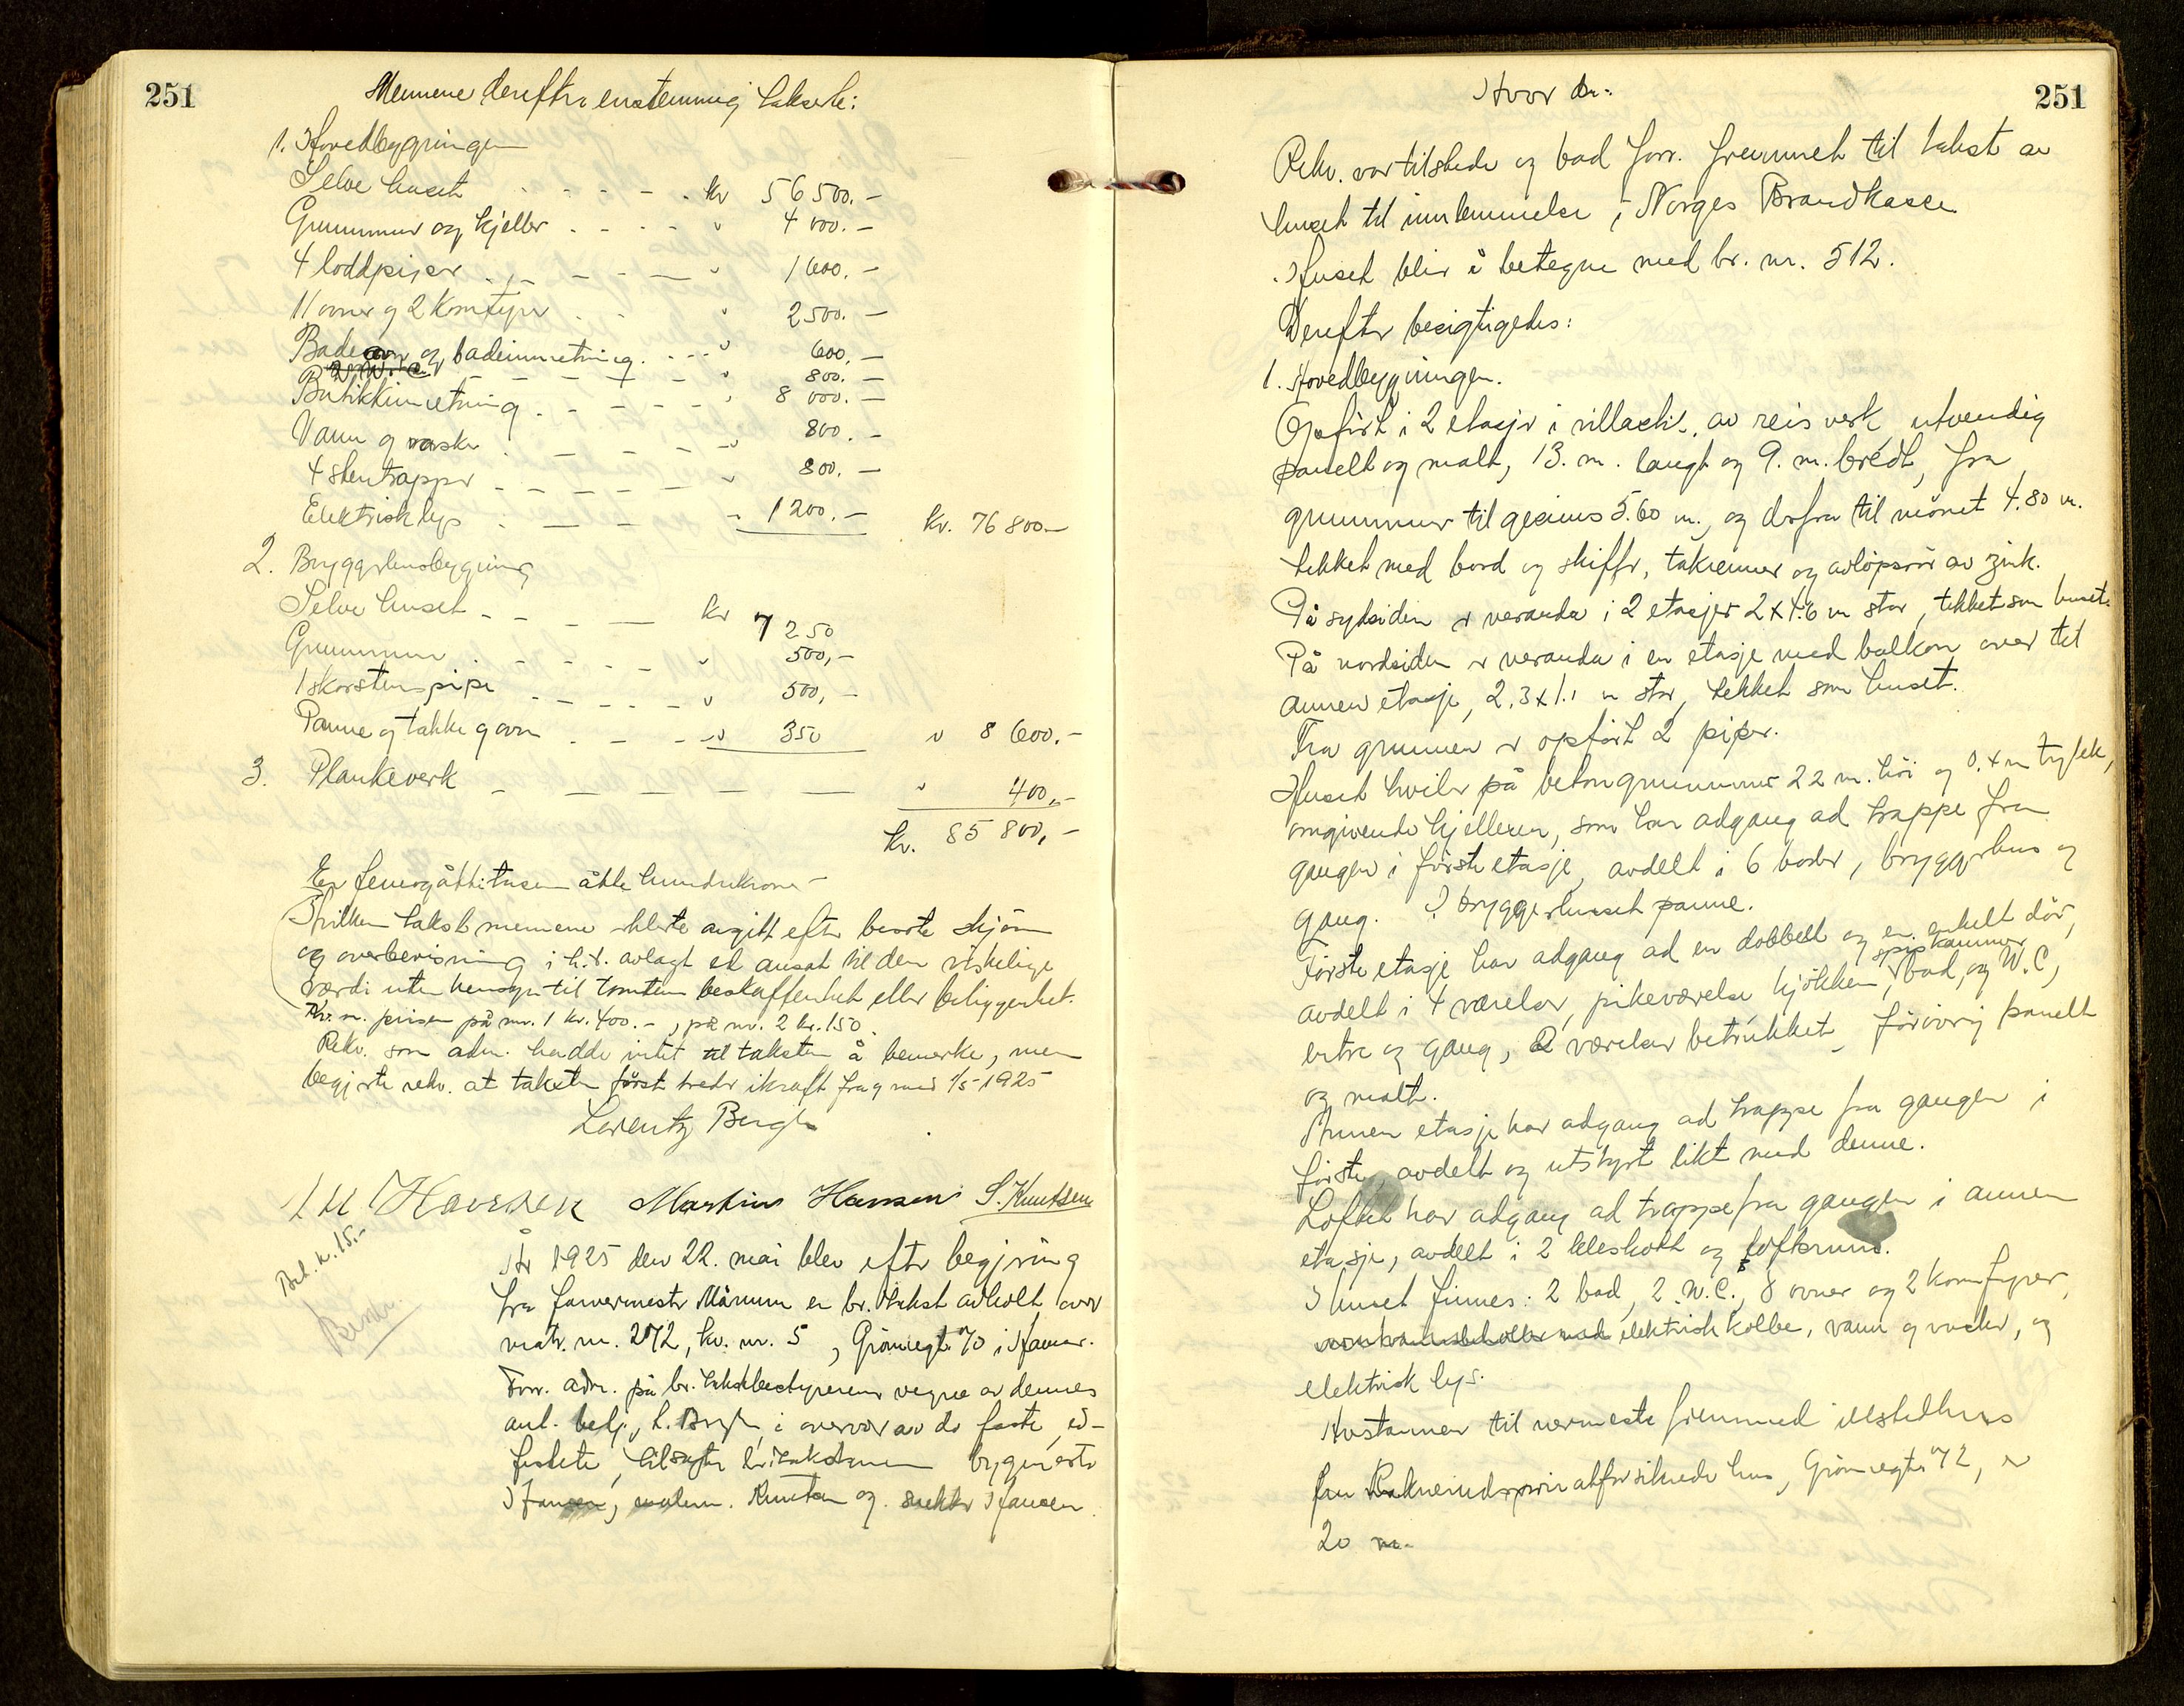 251
Mennene derefter enstemmig takserte:
1. Hovedbygningen
Selve huset kr 56 500.-
Grunnmur og kjeller " 4 000.-
4 loddpiper " 1600.-
11 ovner og 2 komfyrer " 2500.-
Badeovn og badeinnretning. " 600.-
2 W.C. " 800.-
Butikkinnretning " 8 000.-
Vann og vaske " 800.-
4 stentrapper " 800.-
Elektrisk lys " 1200.- kr. 76 800.-
2. Bryggerhusbygning
Selve huset kr 7 250
Grunnmur " 500,-
1 skorstenspipe " 500,-
Panne og takke og ovn " 350 " 8 600.-
3. Plankeverk " 400,-
kr. 85 800,-
Er femogåttitusen åtte hundrekroner -
Hvilken takst mennene erklærte avgitt efter beste skjøn
og overbevisning i h.t. avlagt ed ansat til den virkelige
værdi uten hensyn til tomtens beskaffenhet eller beliggenhet.
Kv. m. prisen på nr. 1 kr. 400.-, på nr. 2 kr. 150.
Rekv. som adm. hadde intet til taksten å bemerke, men
begjærte rekv. at taksten først treder ikraft fra og med 1/5-1925
Lorentz Bergh
Martius Hansen S. Knutsen
Bet. kr. 15.-
År 1925 den 22. mai blev efter begjæring
fra farvermester Mårum en br. takst avholt over
matr. nr. 272, kv. nr. 5, Grønnegt. 70 i Hamar.
Forr. adm. på br. takstbestyrerens vegne av dennes
aut. betj., L. Bergh, i overvær av de faste, ed-
festede, tilsatte br. takstmenn bygmester
Hansen, malerm. Knutsen og snekker Hansen.
251
Hvor da:
Rekv. var tilstede og bad forr. fremmet til takst av
huset til innlemmelse i Norges Brandkasse.
Huset blir å betegne med br. nr. 512.
Derefter besigtigedes:
1. Hovedbygningen.
Opført i 2 etasjer i villastil, av reisverk utvendig
panelt og malt, 13. m. langt og 9. m. bredt, fra
grunnmur til gesims 5.60 m., og derfra til mønet 4.80 m.
tekket med bord og skiffer, takrenner og avløpsrør av zink.
På sydsiden er veranda i 2 etasjer 2 x 4.6 m stor, tekket som huset.
På nordsiden er veranda i en etasje med balkon over til
annen etasje, 2.3 x 1.1 m stor, tekket som huset.
Fra grunnen er opført 2 piper.
Huset hviler på betongrunnmur 22 m. høi og 0.4 m tykk,
omgivende kjelleren, som har adgang ad trappe fra
gangen i første etasje, avdelt i 6 boder, bryggerhus og
gang. I bryggerhuset panne.
Første etasje har adgang ad en dobbelt og en enkelt dør,
avdelt i 4 værelser, pikeværelse, kjøkken, spiskammer, bad, og W.C,
entre og gang, 2 værelser betrukket, forøvrig panelt
og malt.
Annen etasje har adgang ad trappe fra gangen i
første, avdelt og utstyrt likt med denne.
Loftet har adgang ad trappe fra gangen i annen
etasje, avdelt i 2 kleskott og loftsrum.
I huset finnes: 2 bad, 2 W.C., 8 ovner og 2 komfyrer,
varmtvannsbeholder med elektrisk kolbe, vann og vasker, og
elektrisk lys.
Avstannen til nærmeste fremmed ildstedhus
fru privat forsikrede hus, Grønnegt. 72, er
20 m.